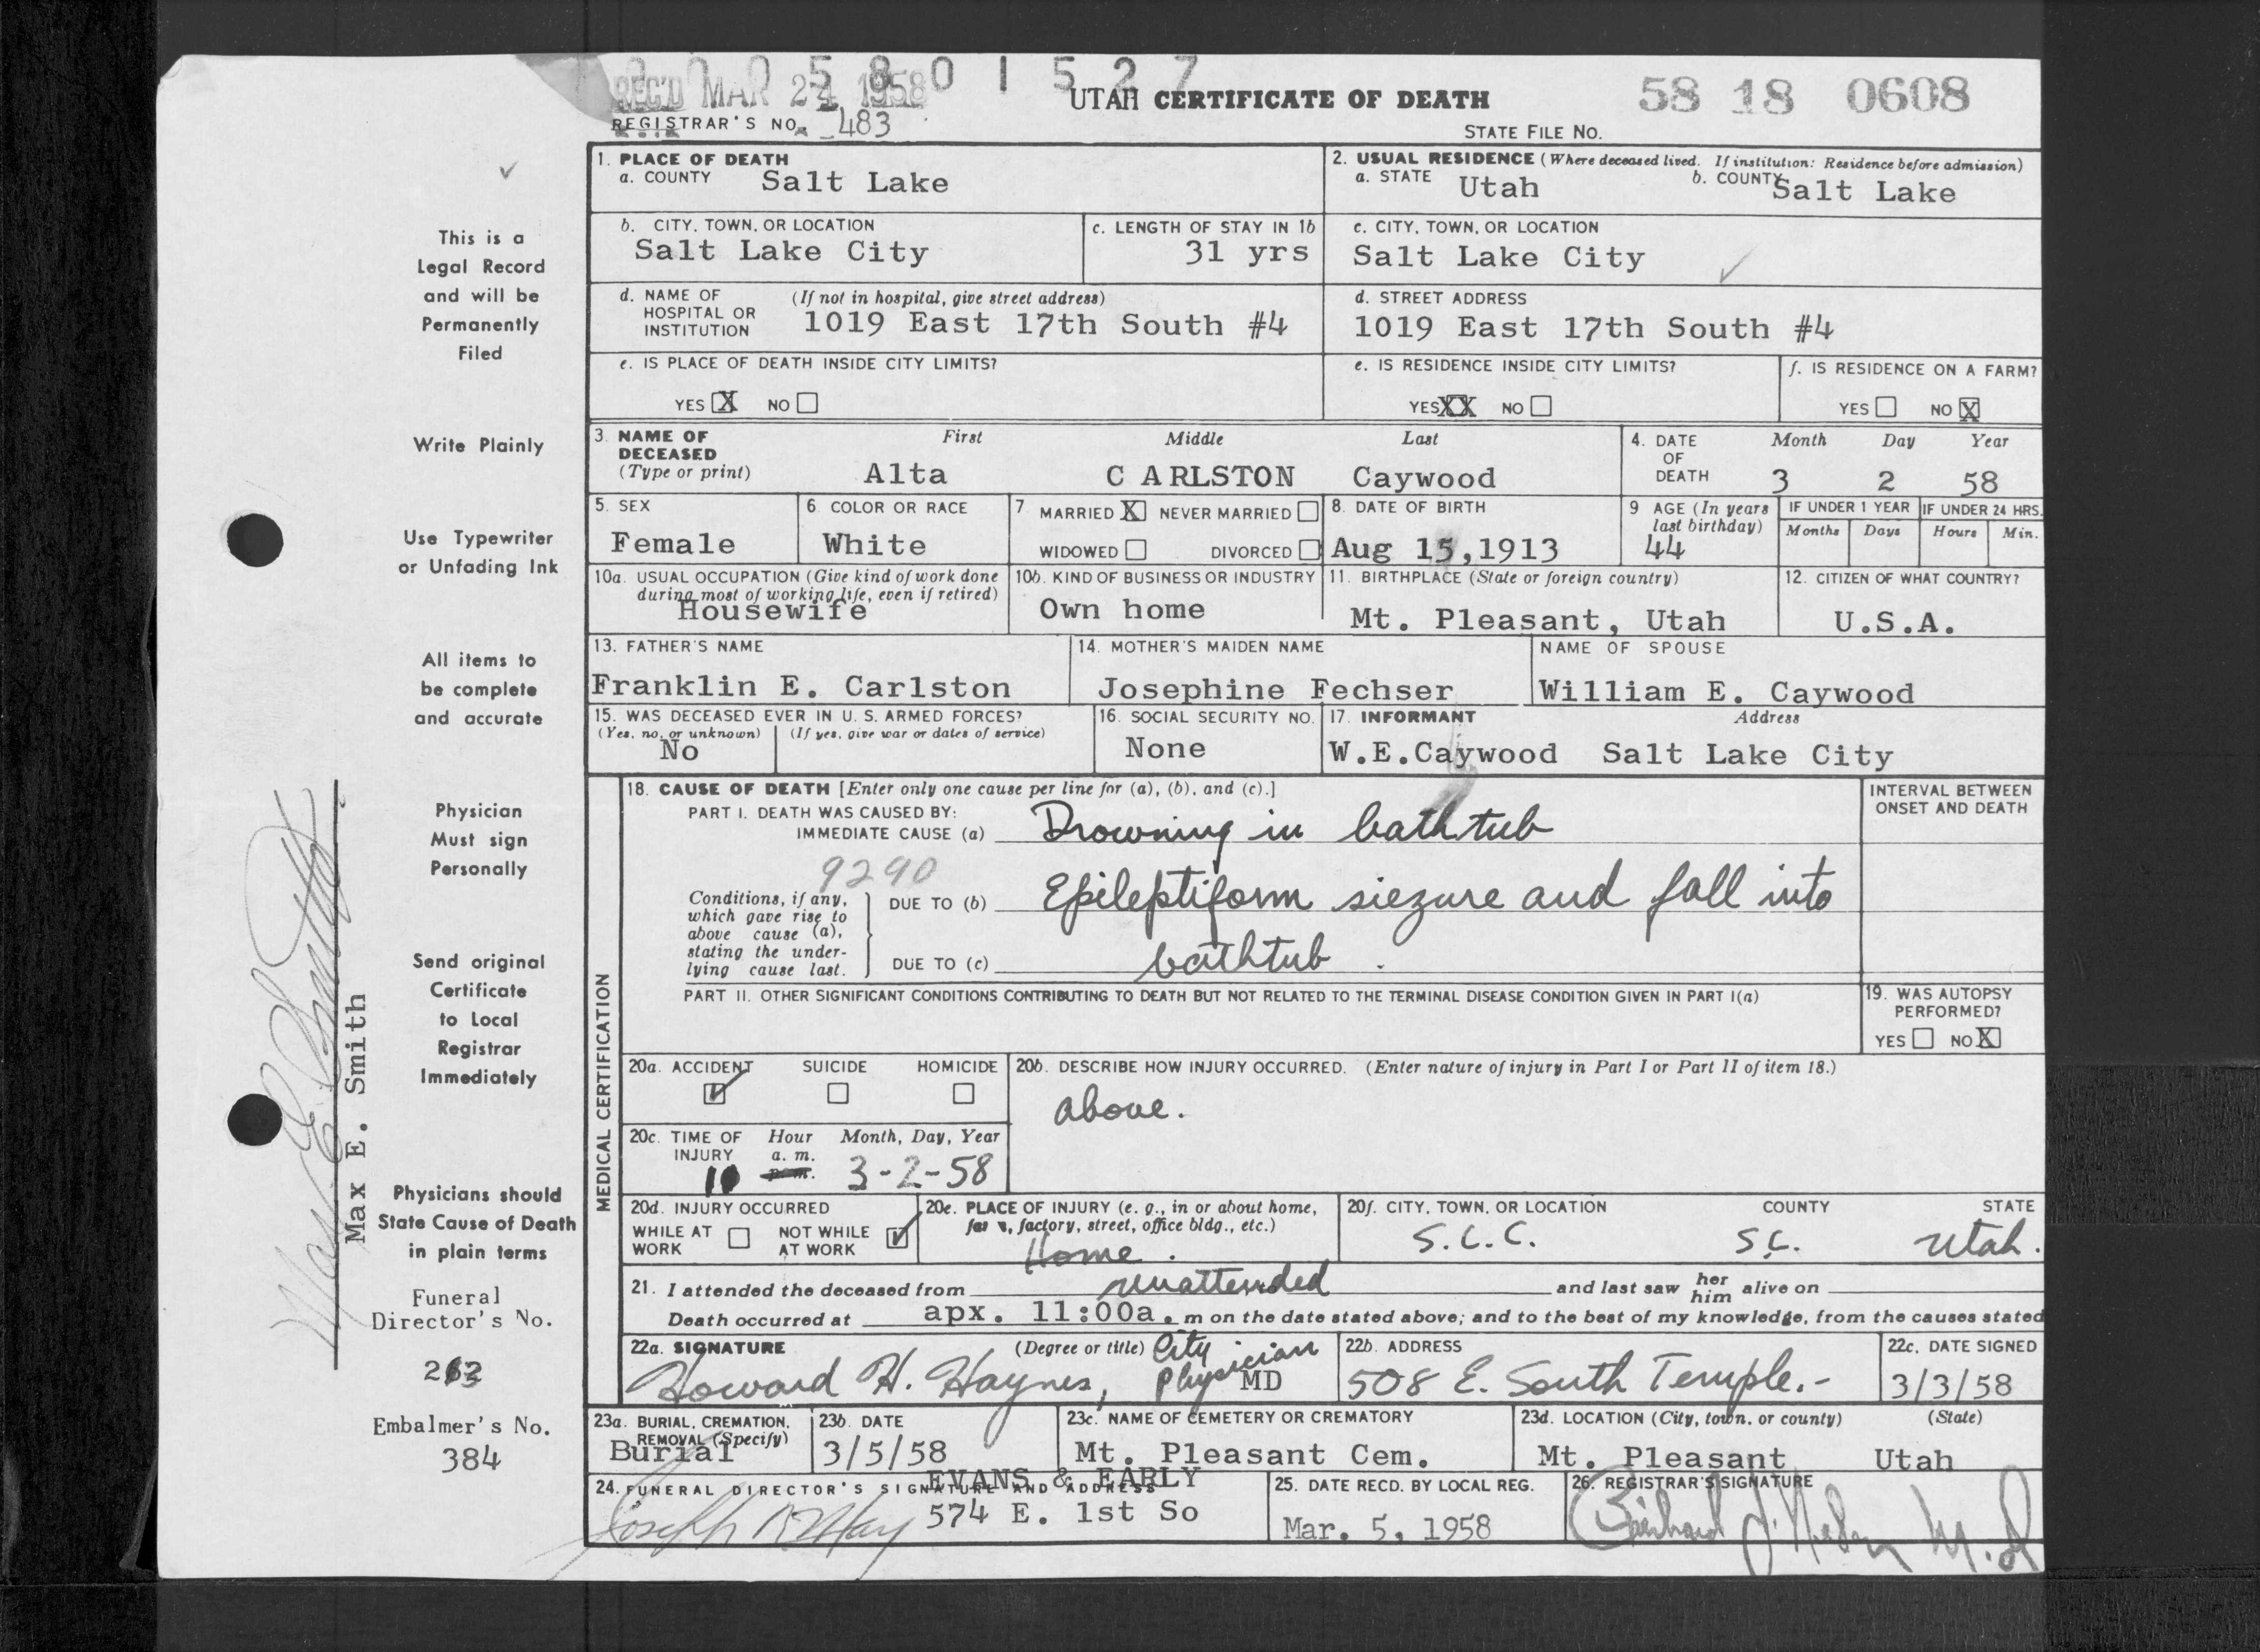 0 0 0 5 8 0 1 5 2 7
REC'D MAR 24 1958
UTAH CERTIFICATE OF DEATH
58 18 0608
REGISTRAR'S NO. 483
STATE FILE NO.
1. PLACE OF DEATH
a. COUNTY Salt Lake
2. USUAL RESIDENCE (Where deceased lived. If institution: Residence before admission)
a. STATE Utah b. COUNTY Salt Lake
b. CITY, TOWN, OR LOCATION
Salt Lake City
c. LENGTH OF STAY IN 1b
31 yrs
c. CITY, TOWN, OR LOCATION
Salt Lake City
d. NAME OF HOSPITAL OR INSTITUTION (If not in hospital, give street address)
1019 East 17th South #4
d. STREET ADDRESS
1019 East 17th South #4
e. IS PLACE OF DEATH INSIDE CITY LIMITS?
YES X NO
e. IS RESIDENCE INSIDE CITY LIMITS?
YES XX NO
f. IS RESIDENCE ON A FARM?
YES NO X
3. NAME OF DECEASED (Type or print) First Middle Last
Alta CARLSTON Caywood
4. DATE OF DEATH Month Day Year
3 2 58
5. SEX
Female
6. COLOR OR RACE
White
7 MARRIED X NEVER MARRIED
WIDOWED DIVORCED
8. DATE OF BIRTH
Aug 15,1913
9 AGE (In years last birthday)
44
IF UNDER 1 YEAR
Months Days
IF UNDER 24 HRS.
Hours Min.
10a. USUAL OCCUPATION (Give kind of work done during most of working life, even if retired)
Housewife
10b. KIND OF BUSINESS OR INDUSTRY
Own home
11. BIRTHPLACE (State or foreign country)
Mt. Pleasant, Utah
12. CITIZEN OF WHAT COUNTRY?
U.S.A.
13. FATHER'S NAME
Franklin E. Carlston
14. MOTHER'S MAIDEN NAME
Josephine Fechser
NAME OF SPOUSE
William E. Caywood
15. WAS DECEASED EVER IN U. S. ARMED FORCES?
(Yes, no, or unknown) (If yes, give war or dates of service)
No
16. SOCIAL SECURITY NO.
None
17. INFORMANT Address
W.E.Caywood Salt Lake City
MEDICAL CERTIFICATION
18. CAUSE OF DEATH [Enter only one cause per line for (a), (b), and (c).]
INTERVAL BETWEEN ONSET AND DEATH
PART I. DEATH WAS CAUSED BY:
IMMEDIATE CAUSE (a) Drowning in bathtub
9290
Conditions, if any, which gave rise to above cause (a), stating the underlying cause last.
DUE TO (b) Epileptiform siezure and fall into
DUE TO (c) bathtub.
PART II. OTHER SIGNIFICANT CONDITIONS CONTRIBUTING TO DEATH BUT NOT RELATED TO THE TERMINAL DISEASE CONDITION GIVEN IN PART I(a)
19. WAS AUTOPSY PERFORMED?
YES NO X
20a. ACCIDENT SUICIDE HOMICIDE
20b. DESCRIBE HOW INJURY OCCURRED. (Enter nature of injury in Part I or Part II of item 18.)
above.
20c. TIME OF INJURY Hour a. m. p. m. Month, Day, Year
10 3-2-58
20d. INJURY OCCURRED
WHILE AT WORK NOT WHILE AT WORK
20e. PLACE OF INJURY (e. g., in or about home, farm, factory, street, office bldg., etc.)
Home.
20f. CITY, TOWN, OR LOCATION COUNTY STATE
S.L.C. S.L. Utah.
21. I attended the deceased from unattended and last saw her him alive on
Death occurred at apx. 11:00a. m on the date stated above; and to the best of my knowledge, from the causes stated
22a. SIGNATURE (Degree or title)
Howard H. Haynes, City Physician MD
22b. ADDRESS
508 E. South Temple.-
22c. DATE SIGNED
3/3/58
23a. BURIAL, CREMATION, REMOVAL (Specify)
Burial
23b. DATE
3/5/58
23c. NAME OF CEMETERY OR CREMATORY
Mt. Pleasant Cem.
23d. LOCATION (City, town, or county) (State)
Mt. Pleasant Utah
24. FUNERAL DIRECTOR'S SIGNATURE AND ADDRESS
EVANS & EARLY
574 E. 1st So
25. DATE RECD. BY LOCAL REG.
Mar. 5, 1958
26. REGISTRAR'S SIGNATURE
M.D
This is a
Legal Record
and will be
Permanently
Filed
Write Plainly
Use Typewriter
or Unfading Ink
All items to
be complete
and accurate
Physician
Must sign
Personally
Send original
Certificate
to Local
Registrar
Immediately
Physicians should
State Cause of Death
in plain terms
Funeral
Director's No.
Embalmer's No.
384
Max E. Smith
Max E. Smith